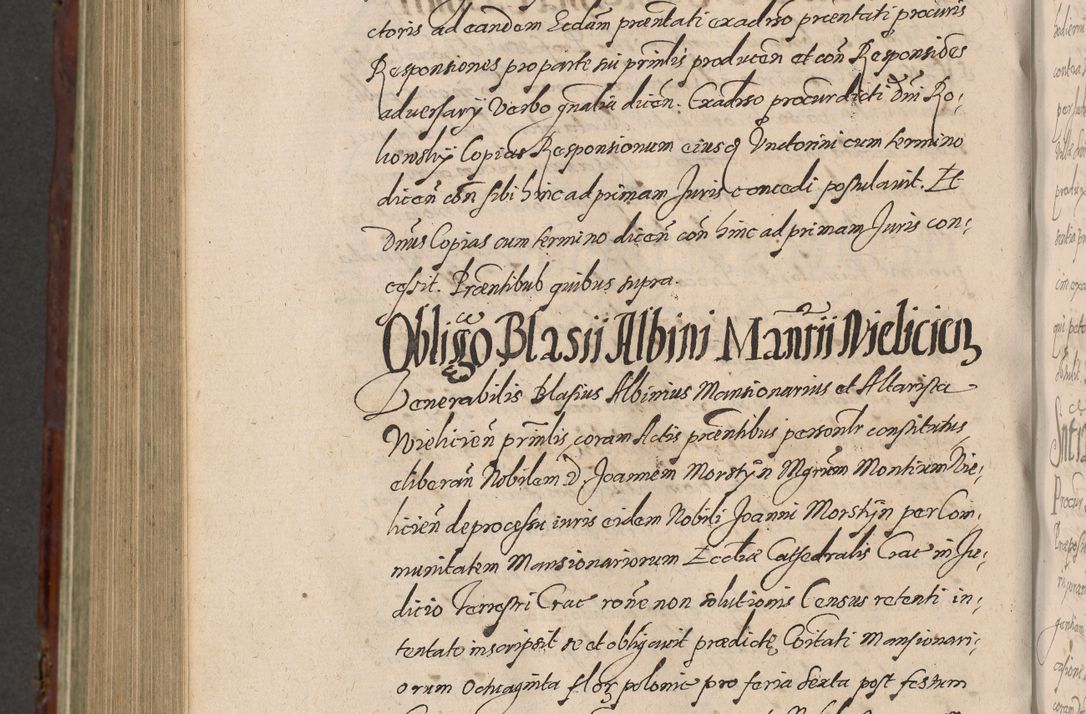 ctoris ad eandem Ecclam prӕntati exadrso prӕntati procuris
Responsiones pro parte sui prinlis producen et con Responsiōes
adversarij Verbo gnalia dicen. Exadrso procur dicti Dni Ro-
howskij Copias Responsionum eiusq Unctorini cum termino
dicen con sibi hinc ad primam Juris concedi postulavit. Et
Dnus Copias cum termino dicen con hinc ad primam Juris con-
cessit. Prӕntibub quibus supra.
Obligo Blasii Albini Manrii Wielicien
Venerabilis Blasius Albinius Mansionarius et Altarista
Wielicien prinlis coram Actis prӕntibus personlr constitutus,
eliberan Nobilem D. Joannem Morstyn Mgrum Montium Wie-
licien de processu iuris eidem Nobili Joanni Morstijn per Com-
munitatem Mansionariorum Ecctiӕ Cathedralis Crac in Ju-
dicio Terrestri Crac rone non solutionis Census retenti in-
tentato inscripsit se et obligavit prӕdictę Coitati Mansionari-
orum Octuaginta flor polonic pro feria sexta post festum